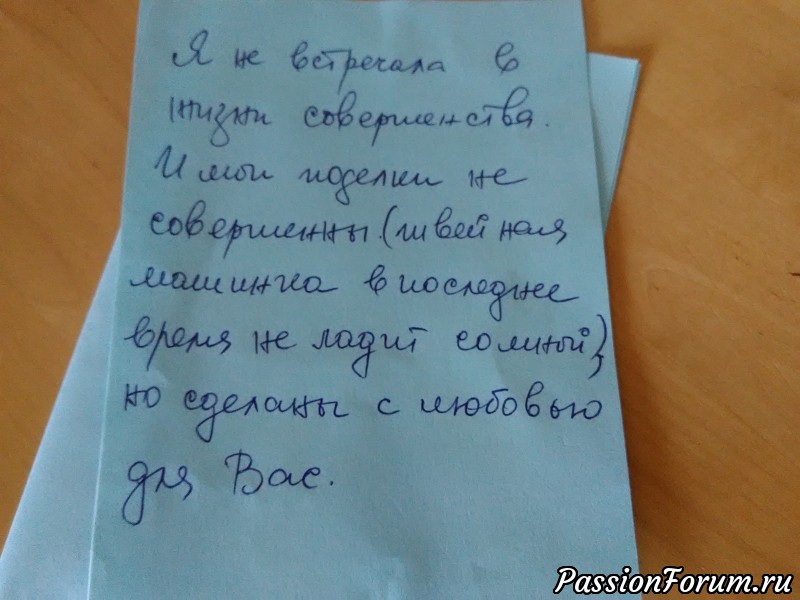 Я не встречала в
жизни совершенства.
И мои поделки не
совершенны.(швейная
машинка в последнее
время не ладит со мной),
но сделаны с любовью
для Вас.
PassionForum.ru